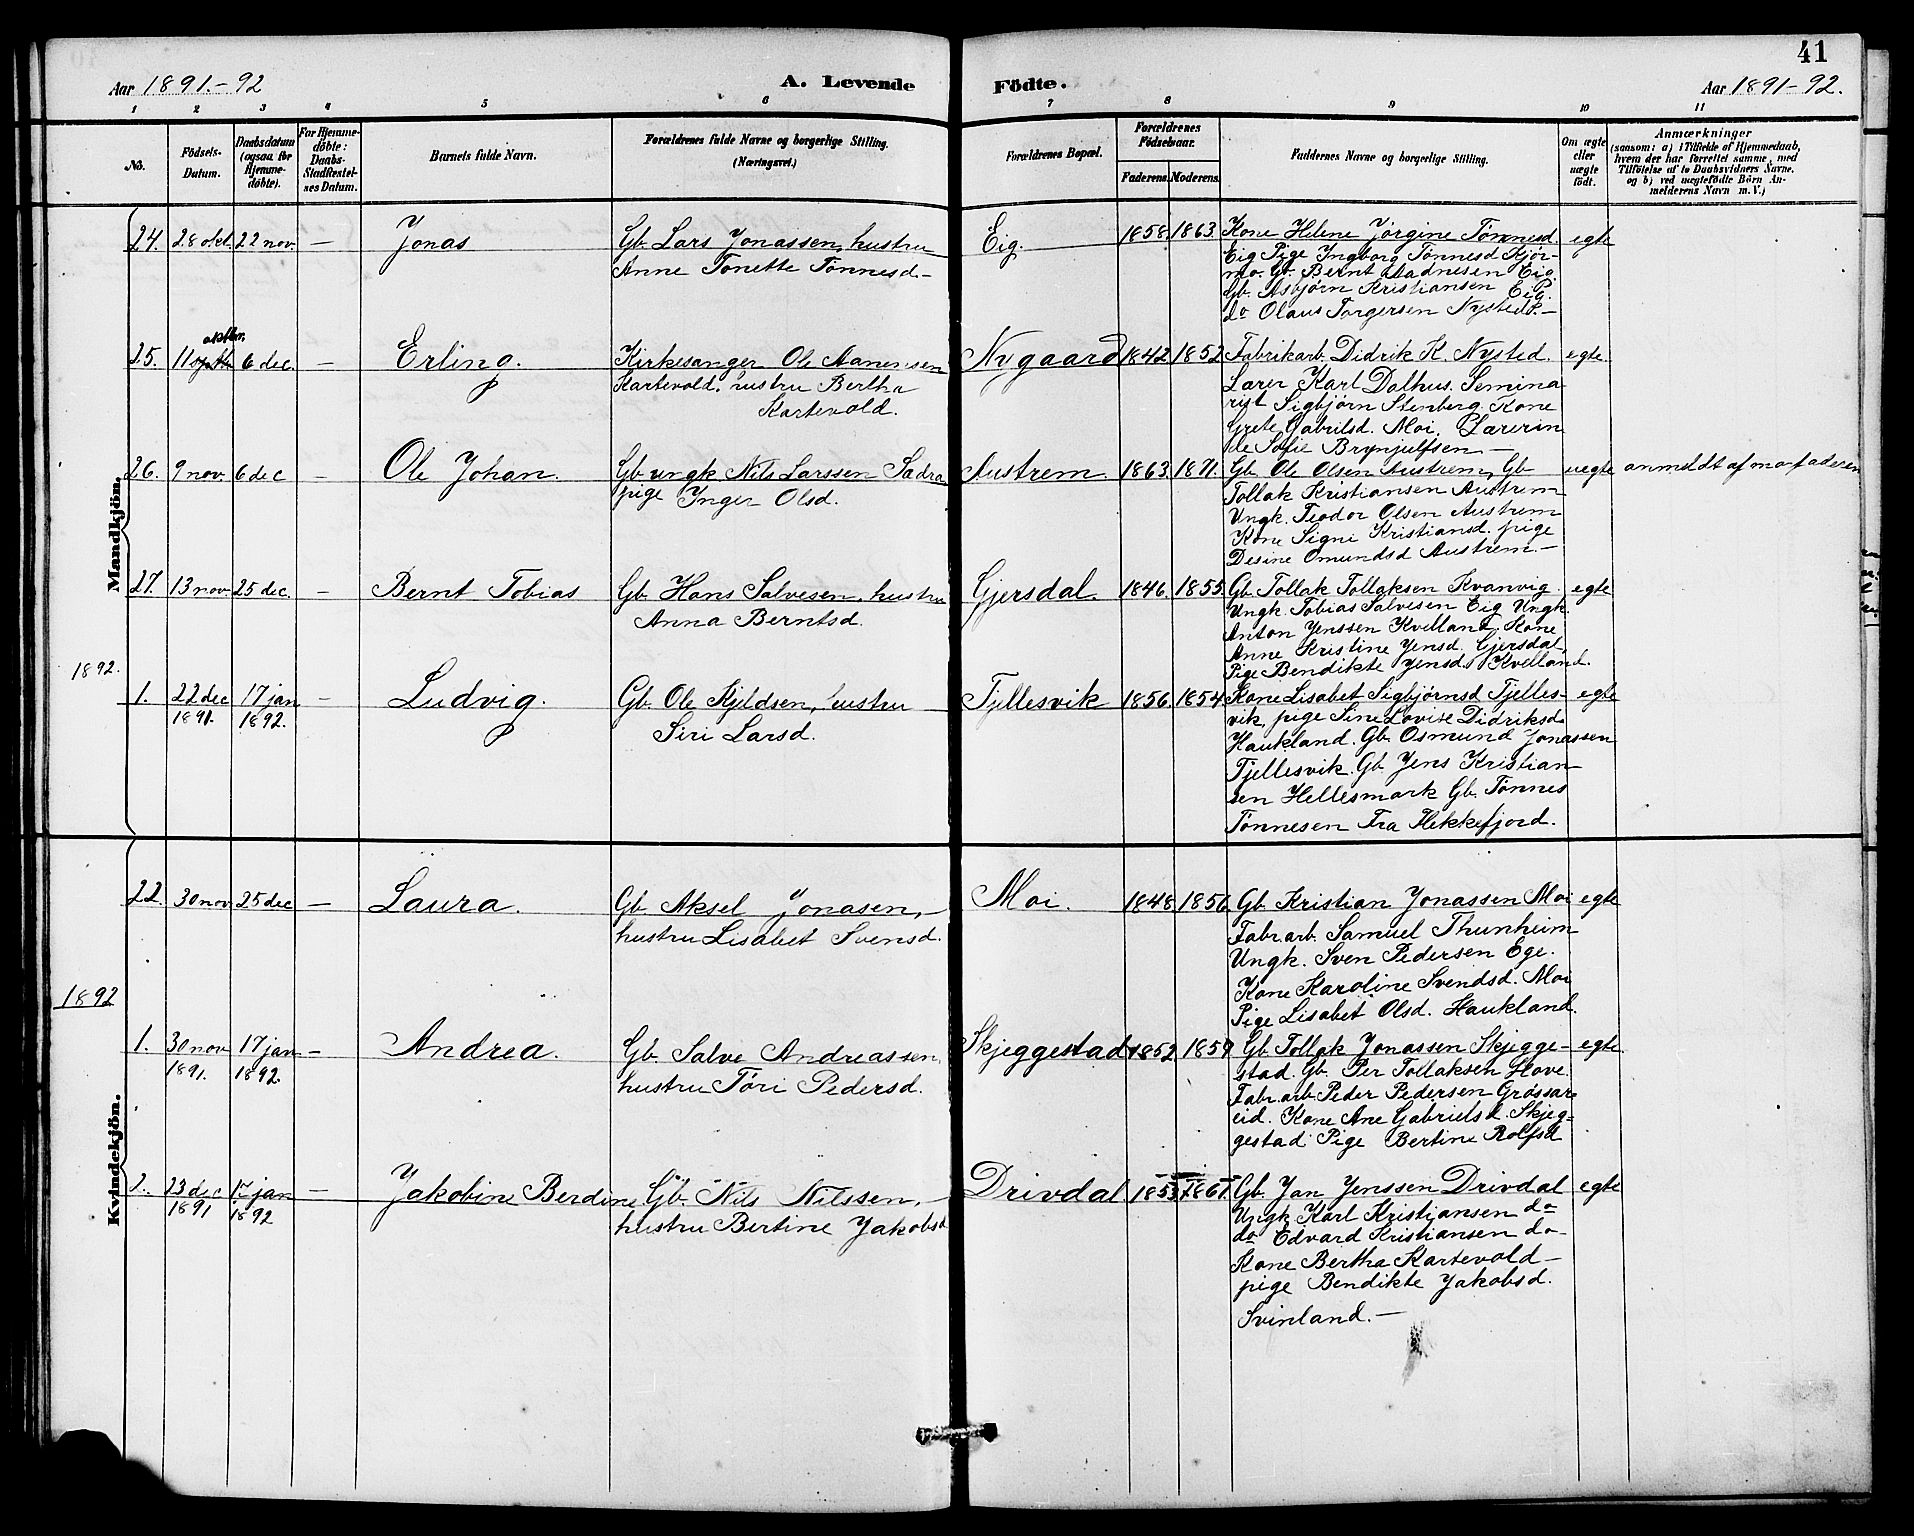 41
Aar 1891.-92
A. Levende Födte.
Aar 1891-92.
1 2 3 4 5 6 7 8 9 10 11
No.
Födsels-Datum.
Daabsdatum (ogsaa for Hjemme-döbte).
For Hjemme-döbte: Daabs-Stadfæstel-ses Datum.
Barnets fulde Navn.
Forældrenes fulde Navne og borgerlige Stilling. (Næringsvei.)
Forældrenes Bopæl.
Forældrenes Födselsaar.
Faderens. Moderens.
Faddernes Navne og borgerlige Stilling.
Om ægte eller uægte födt.
Anmærkninger
(saasom: a) i Tilfælde af Hjemmedaab, hvem der har forrettet samme, med Tilföielse af to Daabsvidners Navne, og b) ved uægtefödte Börn An-melderens Navn m. V.)
Mandkjön.
24. 28 okt. 22 nov. — Jonas
Gb. Lars Jonassen, hustru
Anne Tonette Tønnesd —
Eig. 1858 1863.
Kone Helene Jørgine Tønnesd. egte
Eig Pige Ingborg Tønnesd Kjør-
mo. Gb. Bernt Aadnesen Eig.
Gb. Asbjørn Kristiansen Eig.
do Olaus Torgersen Nysted. —
oktbr.
25. 11 septb 6 dec. — Erling.
Kirkesanger Ole Aanensen
Kartevold. hustru Bertha
Kartevold.
Nygaard 1842 1852
Fabrikarb. Didrik K. Nysted. egte.
Lærer Karl Dalhus. Semina
rist Sigbjørn Stenberg. Kone
Grete Gabrilsd. Moi. Lærerin
de Sofie Brynjulfsen —
26. 9 nov. 6 dec — Ole Johan.
Gb ungk Nils Larssen Sædra
pige Inger Olsd.
Austrem. 1863. 1871.
Gb. Ole Olsen Austrem, Gb uegte anmeldt af morfaderen
Tollak Kristiansen Austrem
Ungk. Teodor Olsen Austrem
Kone Signi Kristiansd. pige
Desine Omundsd Austrem. —
27. 13 nov. 25 dec. — Bernt Tobias
Gb Hans Salvesen, hustru
Anna Berntsd.
Gjersdal. 1846. 1855.
Gb Tollak Tollaksen Kvanvig. egte
Ungk. Tobias Salvesen Eig Ungk.
Anton Jenssen Kvelland. Kone
Anne Kristine Jensd. Gjersdal,
Pige Bendikte Jensd. Kvelland.
1892.
1. 22 dec 17 jan — Ludvig.
1891. 1892.
Gb. Ole Kjeldsen, hustru
Siri Larsd.
Tjellesvik 1856. 1854
Kone Lisabet Sigbjørnsd Tjelles- egte
vik, pige Sine Lovise Didriksd
Haukland. Gb. Osmund Jonassen
Tjellesvik. Gb. Jens Kristian-
sen Hellesmark Gb. Tønnes
Tønnesen Fra Flekkefjord.
Kvindekjön.
22. 30 nov 25 dec — Laura.
Gb Aksel Jonasen, —
hustru Lisabet Svensd.
Moi. 1848. 1856
Gb Kristian Jonassen Moi egte
Fabr.arb. Samuel Thunheim
Ungk. Sven Pedersen Ege.
Kone Karoline Svendsd. Moi
Pige Lisabet Olsd. Haukland.
1892
1. 30 nov 17 jan — Andrea.
1891. 1892.
Gb. Salve Andreassen,
hustru Tøri Pedersd.
Skjeggestad 1852 1859
Gb. Tollak Jonassen Skjegge- egte.
stad. Gb. Per Tollaksen Hove.
Fabr.arb. Peder Pedersen Grøssar
eid. Kone Ane Gabrielsd. Skjeg-
gestad Pige Bertine Rolfsd
2. 23 dec 17 jan — Jakobine Berdine
1891 1892
Gb. Nils Nilssen, —
hustru Bertine Jakobsd
Drivdal 1853 1867.
Gb. Jan Jenssen Drivdal egte
Ungk Karl Kristiansen do
do Edvard Kristiansen do —
Kone Bertha Kartevold —
pige Bendikte Jakobsd.
Svinland. —